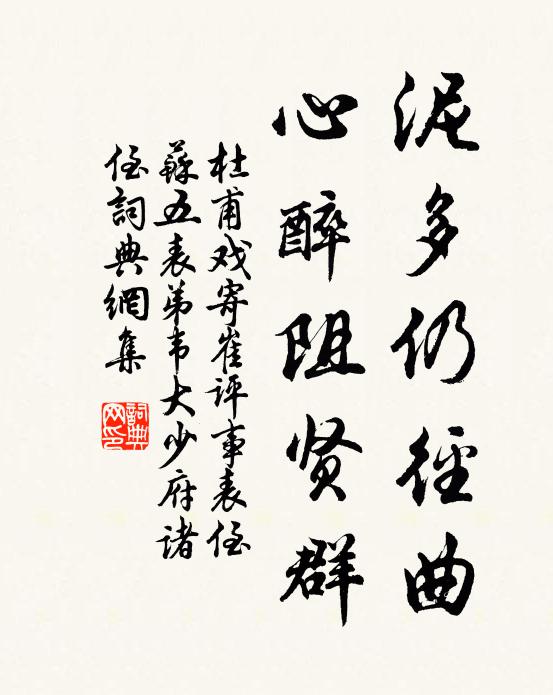 泥多仍徑曲
心醉阻贤群
杜甫戏寄崔评事表侄
蘇五表弟韦大少府诸
侄詞典網集
詞典
网印